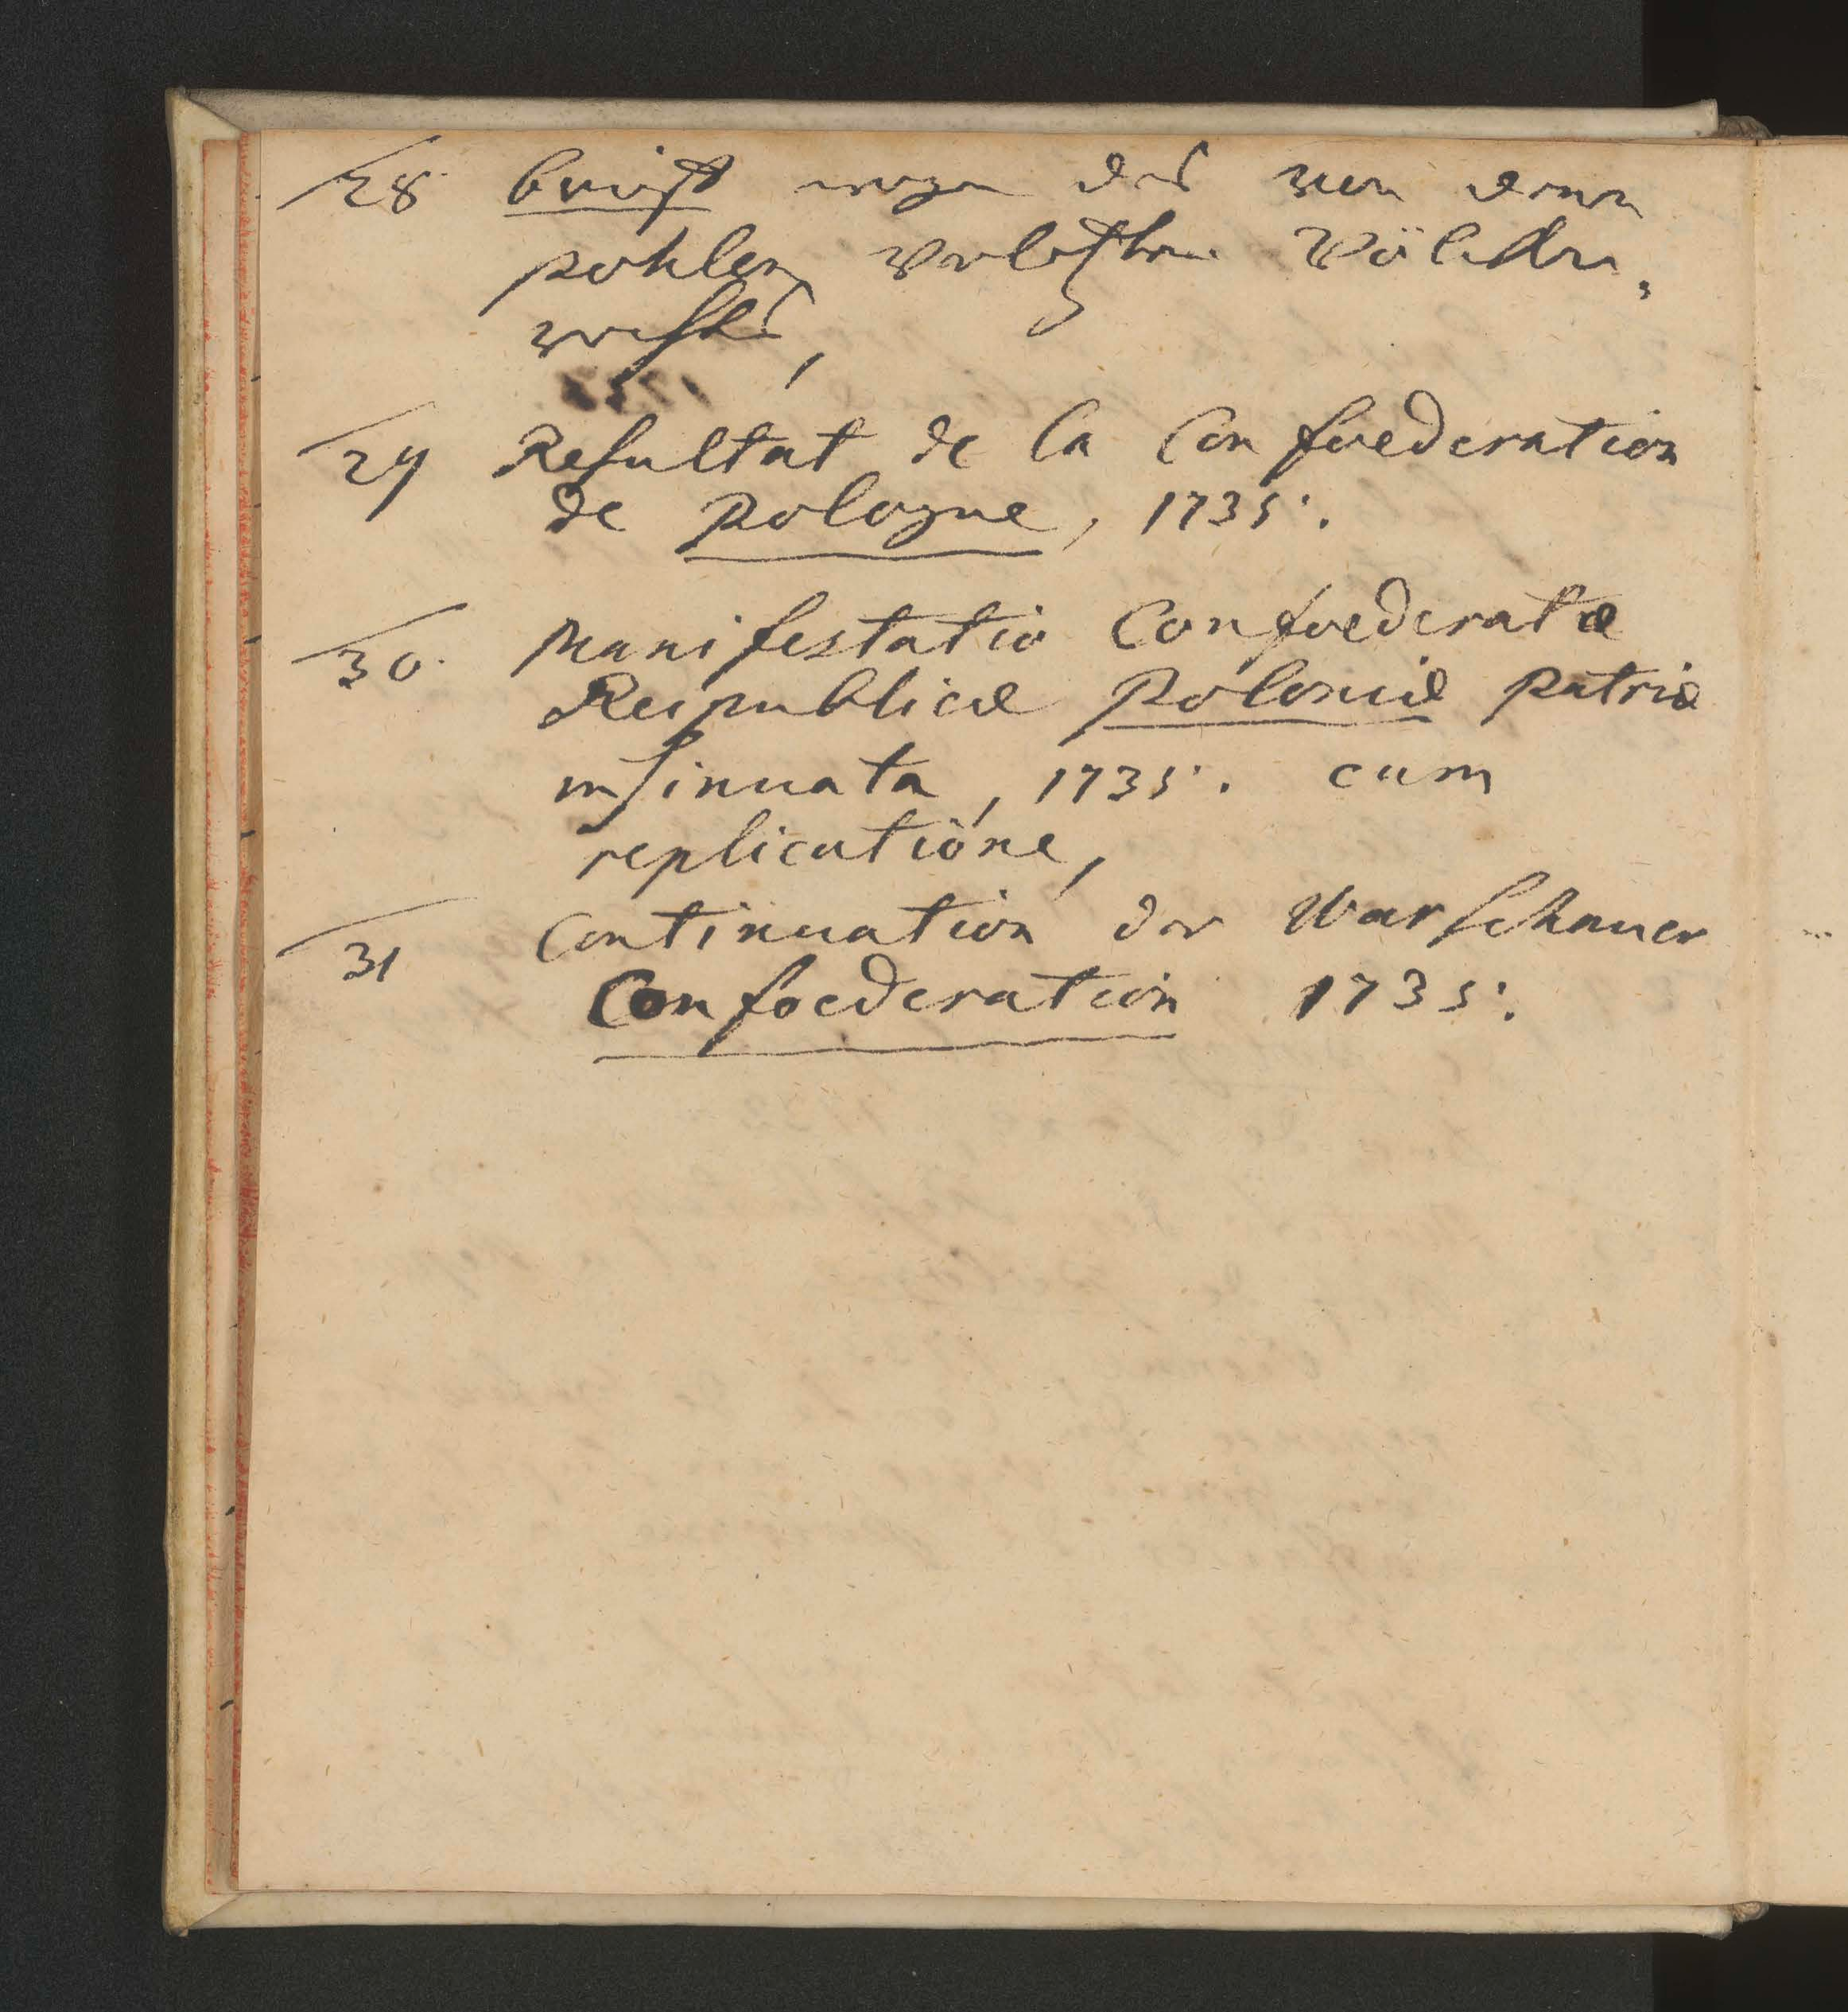 28 brieff wegen des von denen
pohlen verletzten Völcker,
rechts,
29 Resultat de la Confoederation
de Pologne, 1735.
30. Manifestatio Confoederatæ
Reipublicæ Poloniæ Patriæ
insinuata, 1735. cum
replicatione,
31 Continuation der Warschauer
Confoederation 1735.